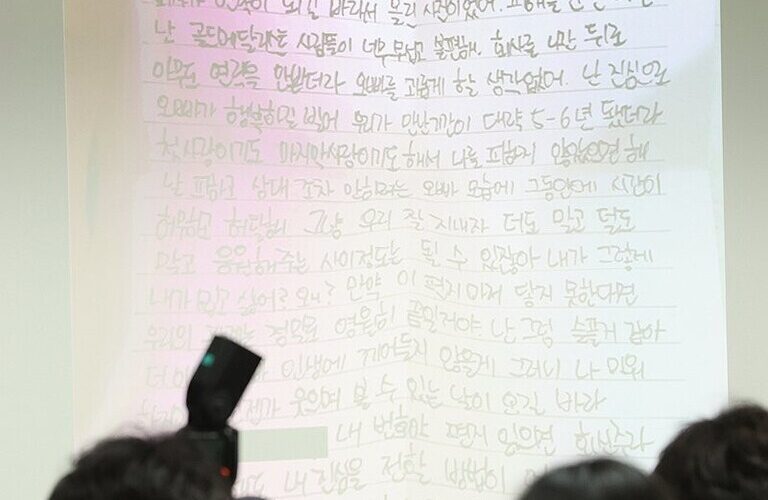 바라서 올린 사진이었어.
난 골드메달리스트 사람들이 너무 무섭고 불편해. 회사를 나간 뒤로
아무 연락을 안받더라 오빠를 괴롭게 할 생각없어. 난 진심으로
오빠가 행복하길 빌어 우리가 만난기간이 대략 5-6년 됐더라
첫사랑이기도 마지막사랑이기도 해서 나를 피하지 않았으면 해
난 피하고 상대 조차 안하려는 오빠 모습에 그동안에 시간이
허무하고 허탈해 그냥 우리 잘 지내자 더도 말고 덜도
말고 응원해주는 사이정도는 될 수 있잖아 내가 그렇게
내가 밉고 싫어? 왜? 만약 이 편지마저 닿지 못한다면
우리의 정말로 영원히 끝일거야 난 그럼 슬플거 같아
인생에 끼어들지 않을게 그러니 나 미워
웃으며 볼 수 있는 날이 오길 바라
내 번호야 편지 읽으면 회신주라
내 진심을 전할 방법이